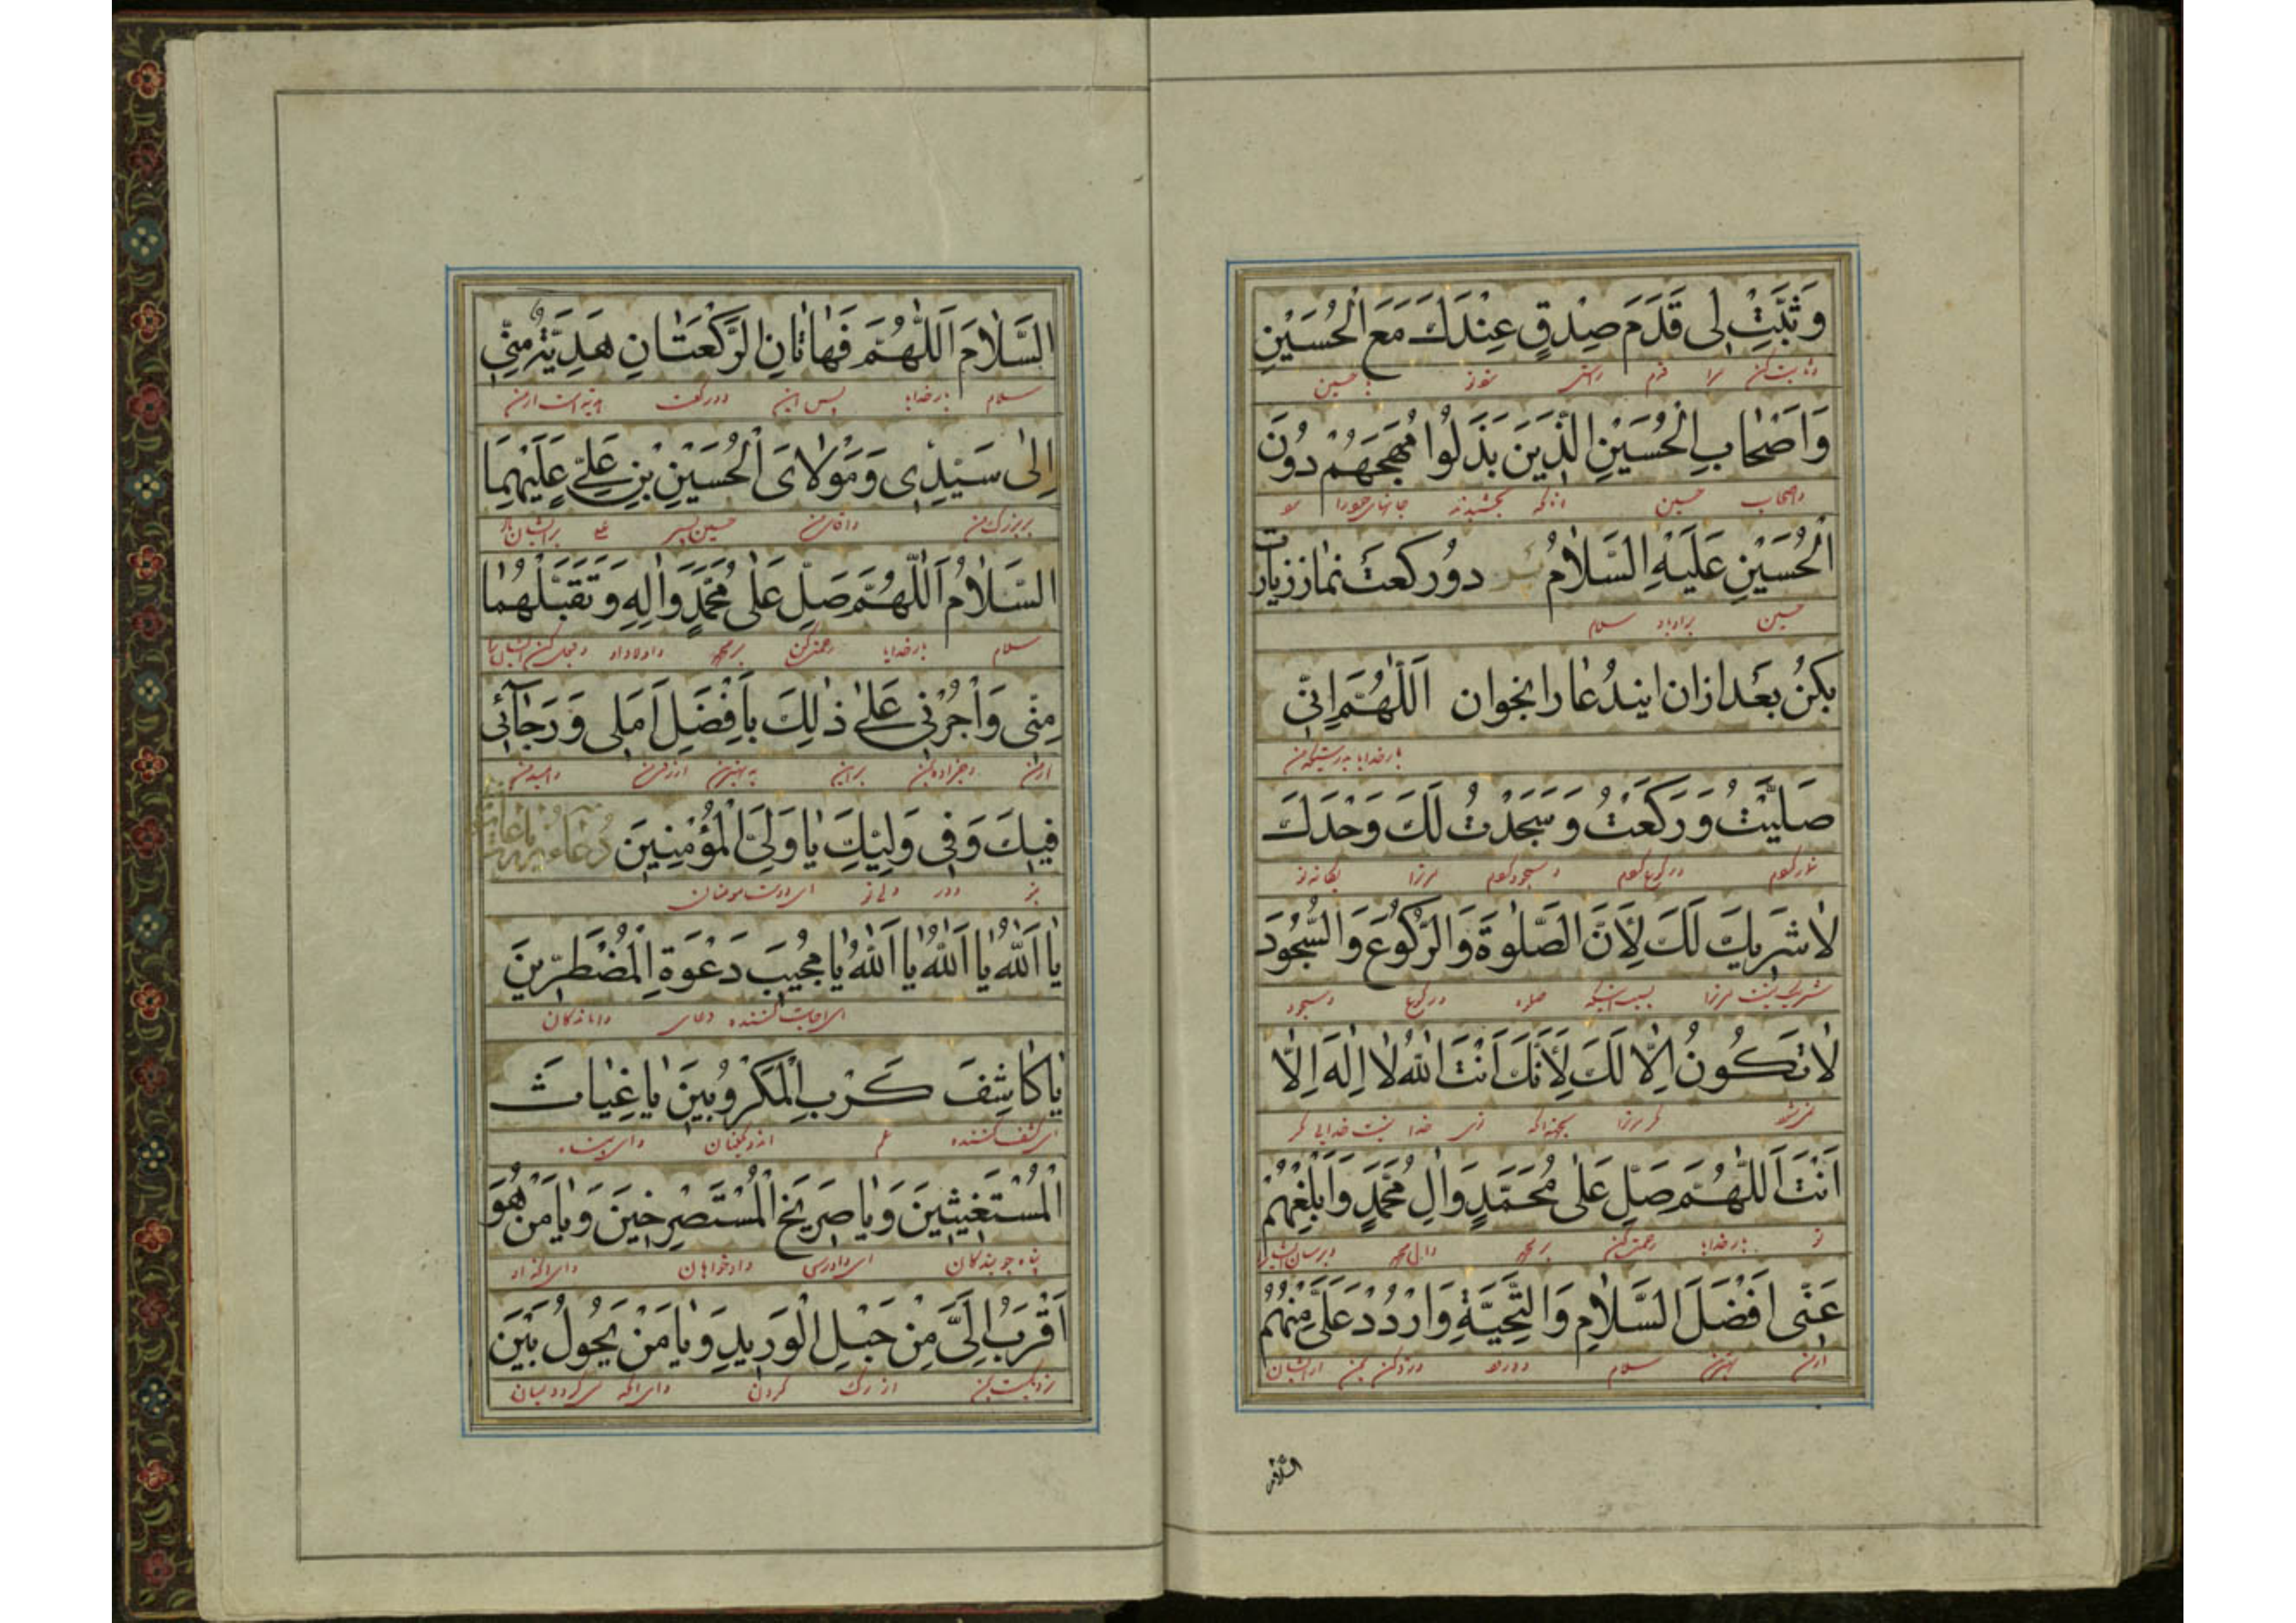 وَثَبِّتْ لِی قَدَمَ صِدْقٍ عِنْدَكَ مَعَ الْحُسَیْنِ
وثابت کن مرا قدم راستی نزد تو با حسین
وَاَصْحَابِ الْحُسَیْنِ الَّذِینَ بَذَلُوا مُهَجَهُمْ دُونَ
واصحاب حسین آنانکه بخشیدند جانهای خود را
الْحُسَیْنِ عَلَیْهِ السَّلَامُ دو رکعت نماز زیارت
حسین بر او باد سلام
بکن بعد از آن ایندعا را بخوان اَللّٰهُمَّ اِنِّی
بارخدایا بدرستیکه من
صَلَّیْتُ وَرَکَعْتُ وَسَجَدْتُ لَكَ وَحْدَكَ
نماز کردم و رکوع کردم و سجود کردم مر ترا
لَا شَرِیكَ لَكَ لِاَنَّ الصَّلٰوةَ وَالرُّکُوعَ وَالسُّجُودَ
شریک نیست مر ترا بسبب اینکه صلوة و رکوع و سجود
لَا تَکُونُ اِلَّا لَكَ لِاَنَّكَ اَنْتَ اللّٰهُ لَا اِلٰهَ اِلَّا
نمیشود مگر مر ترا بجهة آنکه توئی خدا نیست خدایی مگر
اَنْتَ اَللّٰهُمَّ صَلِّ عَلٰی مُحَمَّدٍ وَاٰلِ مُحَمَّدٍ وَاَبْلِغْهُمْ
تو بارخدایا رحمت کن بر محمد وآل محمد وبرسان ایشانرا
عَنِّی اَفْضَلَ السَّلَامِ وَالتَّحِیَّةِ وَارْدُدْ عَلَیَّ مِنْهُمُ
از من بهترین سلام و درود ورد کن بمن از ایشان
السلام
السَّلَامَ اَللّٰهُمَّ فَهَاتَانِ الرَّکْعَتَانِ هَدِیَّةٌ مِنِّی
سلام بارخدایا پس این دو رکعت هدیه است از من
اِلٰی سَیِّدِی وَمَوْلَایَ الْحُسَیْنِ بْنِ عَلِیٍّ عَلَیْهِمَا
بر بزرگ من وآقای من حسین پسر علی بر ایشان باد
السَّلَامُ اَللّٰهُمَّ صَلِّ عَلٰی مُحَمَّدٍ وَاٰلِهِ وَتَقَبَّلْهُمَا
سلام بارخدایا رحمت کن بر محمد و اولاد او و قبول کن ایشان را
مِنِّی وَاْجُرْنِی عَلٰی ذٰلِكَ بِاَفْضَلِ اَمَلِی وَرَجَآئِی
از من وجزا ده بمن بر این به بهترین آرزوی من وامید من
فِیكَ وَفِی وَلِیِّكَ یَا وَلِیَّ الْمُؤْمِنِینَ دُعَاءِ
در تو و در ولی تو ای دوست مومنان
یَا اَللّٰهُ یَا اَللّٰهُ یَا اَللّٰهُ یَا مُجِیبَ دَعْوَةِ الْمُضْطَرِّینَ
ای اجابت کننده دعای درماندگان
یَا کَاشِفَ کَرْبِ الْمَکْرُوبِینَ یَا غِیَاثَ
ای کشف کننده غم اندوهگینان وای پناه
الْمُسْتَغِیثِینَ وَیَا صَرِیخَ الْمُسْتَصْرِخِینَ وَیَا مَنْ هُوَ
پناه جویندگان ای دادرس دادخواهان وای آنکه او
اَقْرَبُ اِلَیَّ مِنْ حَبْلِ الْوَرِیدِ وَیَا مَنْ یَحُولُ بَیْنَ
نزدیکست بمن از رگ گردن وای آنکه میگردد میان